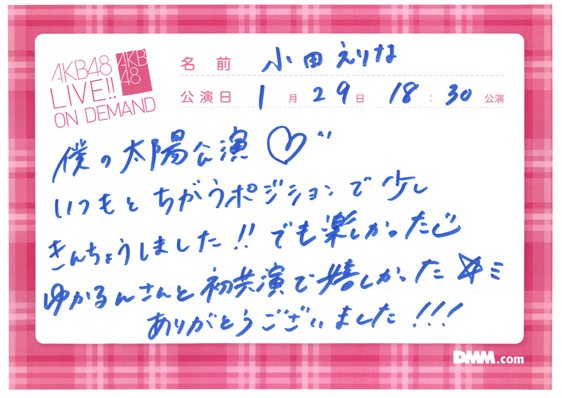 AKB48
LIVE!!
ON DEMAND
AKB
48
名前 小田えりな
公演日 1月29日 18:30公演
僕の太陽公演♡"
いつもとちがうポジションで少し
きんちょうしました!!でも楽しかった
ゆかるんさんと初共演で嬉しかった☆ミ
ありがとうございました!!!
DMM.com